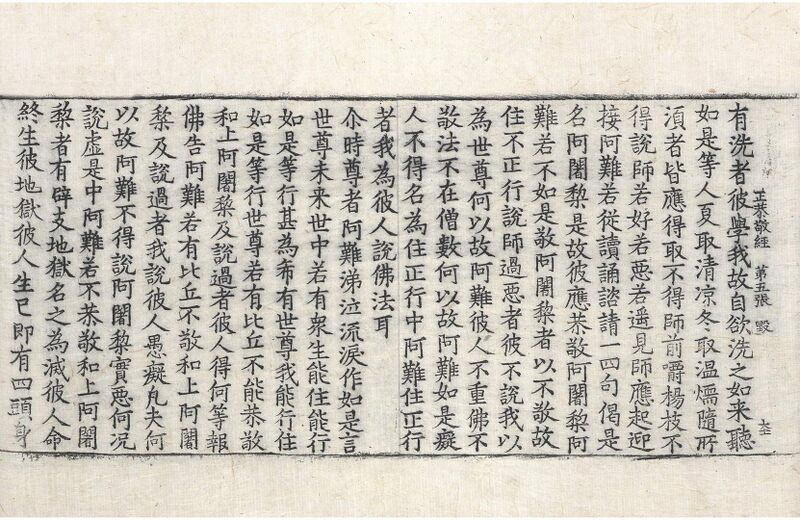 正恭敬經 第五張 毀
有洗者彼學我故自欲洗之如来聽
如是等人夏取清凉冬取温煖隨所
湏者皆應得取不得師前嚼楊枝不
得說師若好若惡若遥見師應起迎
接阿難若從讀誦諮請一四句偈是
名阿闍黎是故彼應恭敬阿闍黎阿
難若不如是敬阿闍黎者以不敬故
住不正行說師過惡者彼不說我以
為世尊何以故阿難彼人不重佛不
敬法不在僧數何以故阿難如是癡
人不得名為住正行中阿難住正行
者我為彼人說佛法耳
尒時尊者阿難涕泣流淚作如是言
世尊未来世中若有衆生能住能行
如是等行甚為希有世尊我能行住
如是等行世尊若有比丘不能恭敬
和上阿闍黎及說過者彼人得何等報
佛告阿難若有比丘不敬和上阿闍
黎及說過者我說彼人愚癡凡夫何
以故阿難不得說阿闍黎實惡何况
說虛是中阿難若不恭敬和上阿闍
黎者有辟支地獄名之為滅彼人命
終生彼地獄彼人生已即有四頭身